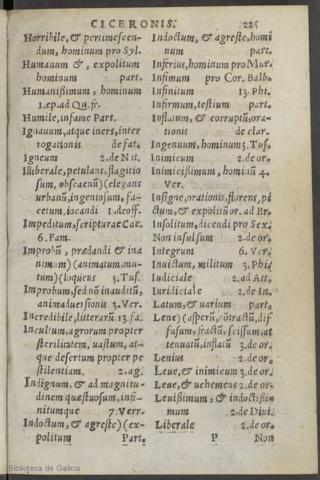 CICERONIS. 225
Horribile, & pertimescen-
dum, hominum pro Syl.
Humanum &, expolitum
hominum part.
Humanißimum, hominum
1.ep.ad Qu.fr.
Humile, infame Part.
Ignauum, atque iners, inter
rogationis de fat.
Igneum 2.de Nat.
Illiberale, petulans, flagitio
sum, obscaenū) (elegans
urbanū, ingeniosum, fa-
cetum, iocandi 1.deoff.
Impeditum, scripturae Cae.
6.Fam.
Improbū, praedandi & ina
nimum) (animatum, mu-
tum) (loquens 3.Tus.
Improbum, sed nō inauditū,
animaduersionis 3.Ver.
Incredibile, litterarū 13.fa.
Incultum, agrorum propter
sterilitatem, uastum, at-
que desertum propter pe
stilentiam. 2.ag.
Indignum, & ad magnitu-
dinem quaestuosum, infi-
nitumque 7.Verr.
Indoctum, & agreste) (ex-
politum Part.
Indoctum, & agreste, homi
num part.
Inferius, hominum pro Mur.
Infimum pro Cor. Balb.
Infinitum 13.Phi.
Infirmum, testium part.
Inflatum, & corruptū, ora-
tionis de clar.
Ingenuum, hominum 3.Tus.
Inimicum 2.de or.
Inimicißimum, hominū 4.
Ver.
Insigne, orationis, florens, pi
ctum, & expolitū or. ad Br.
Insolitum, dicendi pro Sex.
Non insulsum 2.de or.
Integrum 6.Ver.
Inuictum, militum 3.Phi.
Iudiciale 2.ad Att.
Iuridiciale 2.de In.
Latum, & uarium part.
Lene) (asperū, cōtractū, dif
fusum, fractū, scissum, at
tenuatū, inflatū 3.de or.
Lenius 2.de or.
Leue, & inimicum 3.de or.
Leue, & uehemens 2.de or.
Leuißimum, & indoctißi-
mum 2.de Diui.
Liberale 2.de or.
P Non
Biblioteca de Galicia